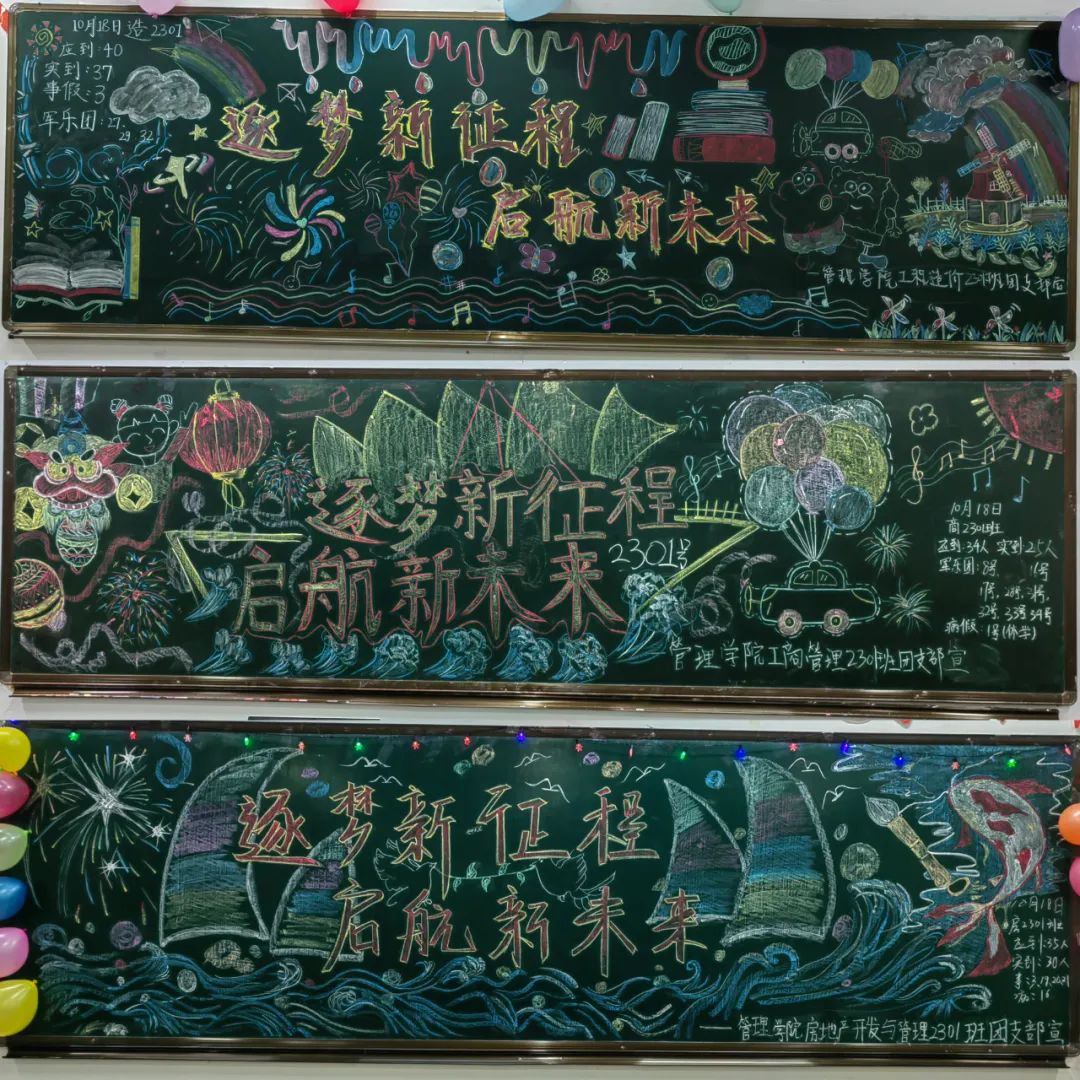 10月18日 造2301
应到:40
实到:37
事假:3
军乐团:27
29 32
逐梦新征程
启航新未来
管理学院工程造价2301班团支部宣
逐梦新征程
启航新未来
2301号
10月18日
商2301班
应到:34人 实到25人
军乐团:8号
1号
28号
32号 33号 34号
病假 1号(休学)
管理学院工商管理2301班团支部宣
逐梦新征程
启航新未来
10月18日
房2301班
应到:35人
实到:30人
事:3.19.20.21
病:16
——管理学院房地产开发与管理2301班团支部宣